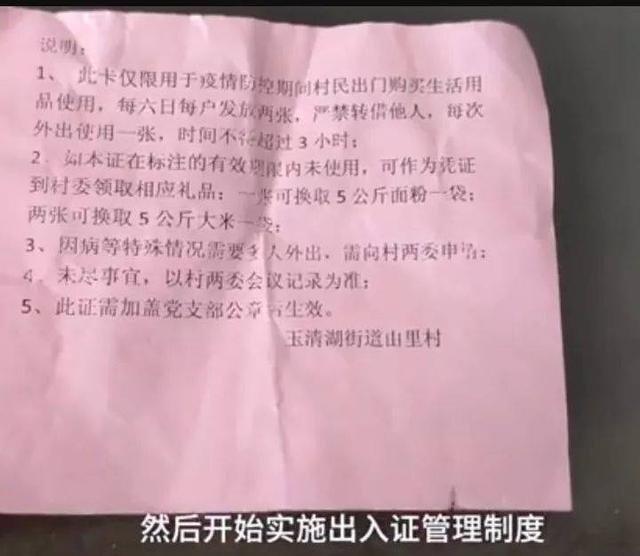 说明：
1、 此卡仅限用于疫情防控期间村民出门购买生活用
品使用，每六日每户发放两张，严禁转借他人，每次
外出使用一张，时间不得超过3小时；
2、如本证在标注的有效期限内未使用，可作为凭证
到村委领取相应礼品：一张可换取5公斤面粉一袋；
两张可换取5公斤大米一袋；
3、因病等特殊情况需要多人外出，需向村两委申请；
4、未尽事宜，以村两委会议记录为准；
5、此证需加盖党支部公章 生效。
玉清湖街道山里村
然后开始实施出入证管理制度